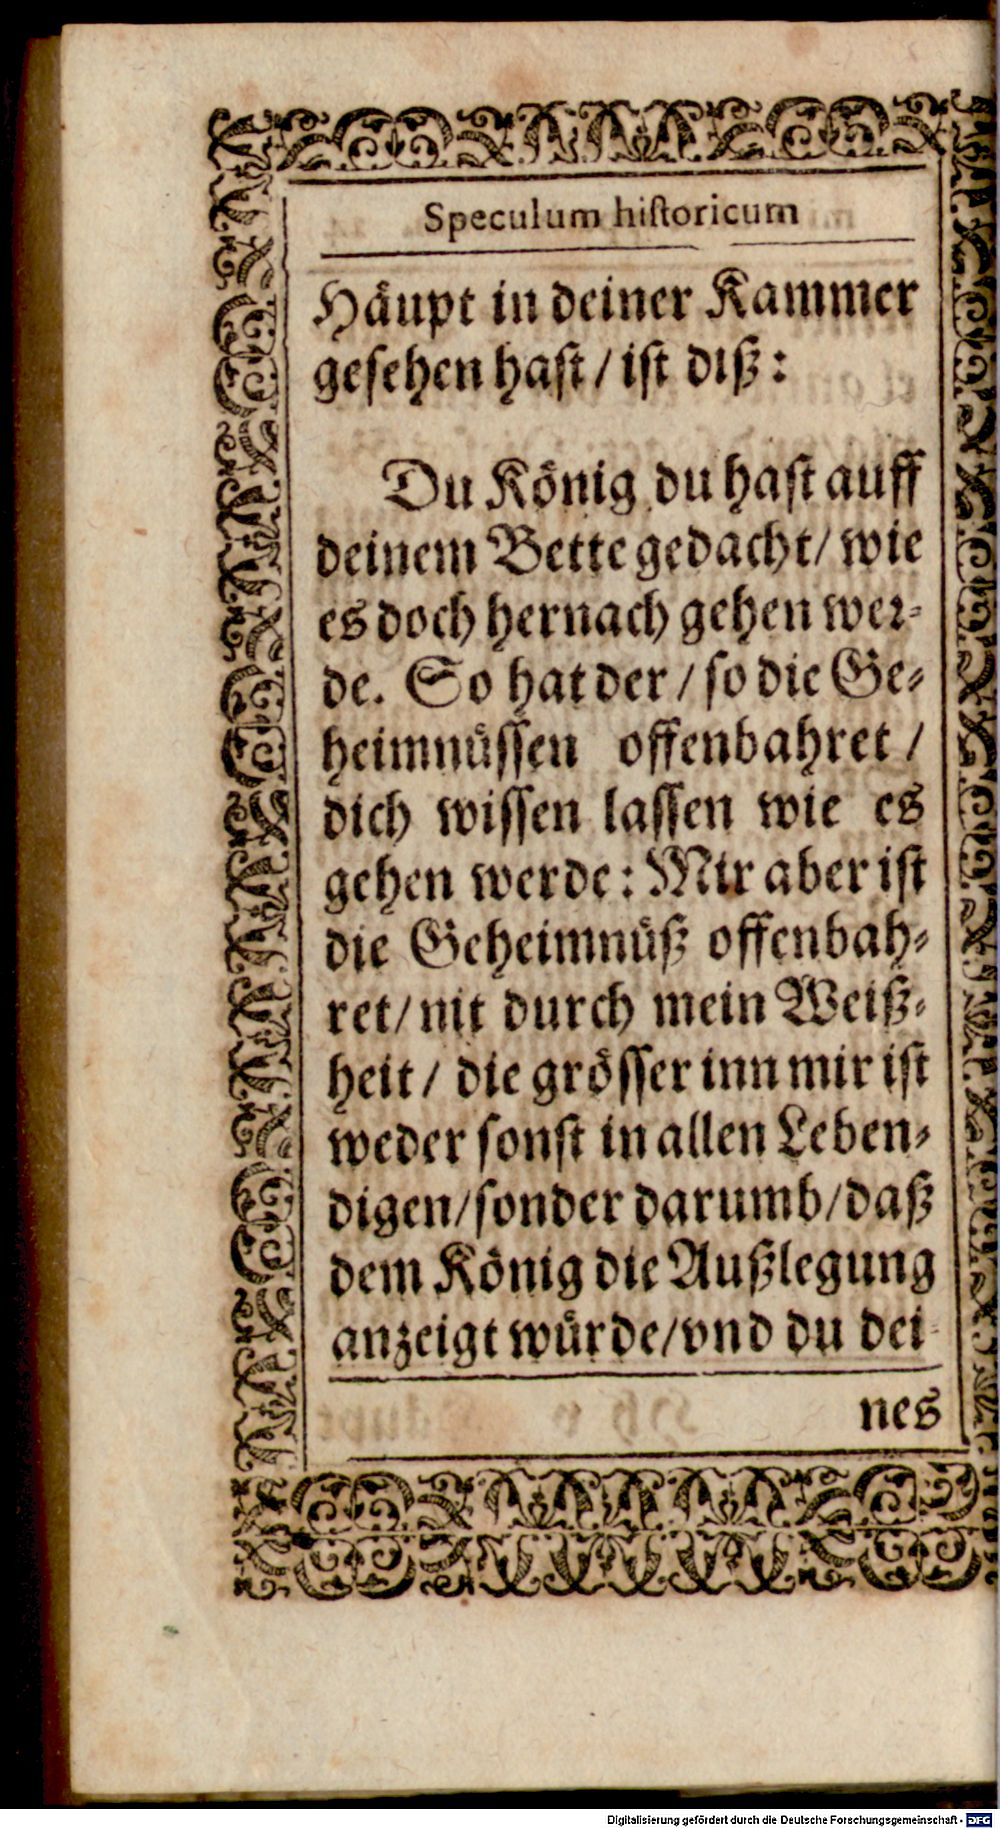 Speculum historicum
Häupt in deiner Kammer
gesehen hast / ist diß :
Du König du hast auff
deinem Bette gedacht / wie
es doch hernach gehen wer-
de. So hat der / so die Ge-
heimnüssen offenbahret /
dich wissen lassen wie es
gehen werde : Mir aber ist
die Geheimnüß offenbah-
ret / nit durch mein Weiß-
heit / die grösser inn mir ist
weder sonst in allen Leben-
digen / sonder darumb / daß
dem König die Außlegung
anzeigt würde / vnd du dei-
nes
Digitalisierung gefördert durch die Deutsche Forschungsgemeinschaft - DFG